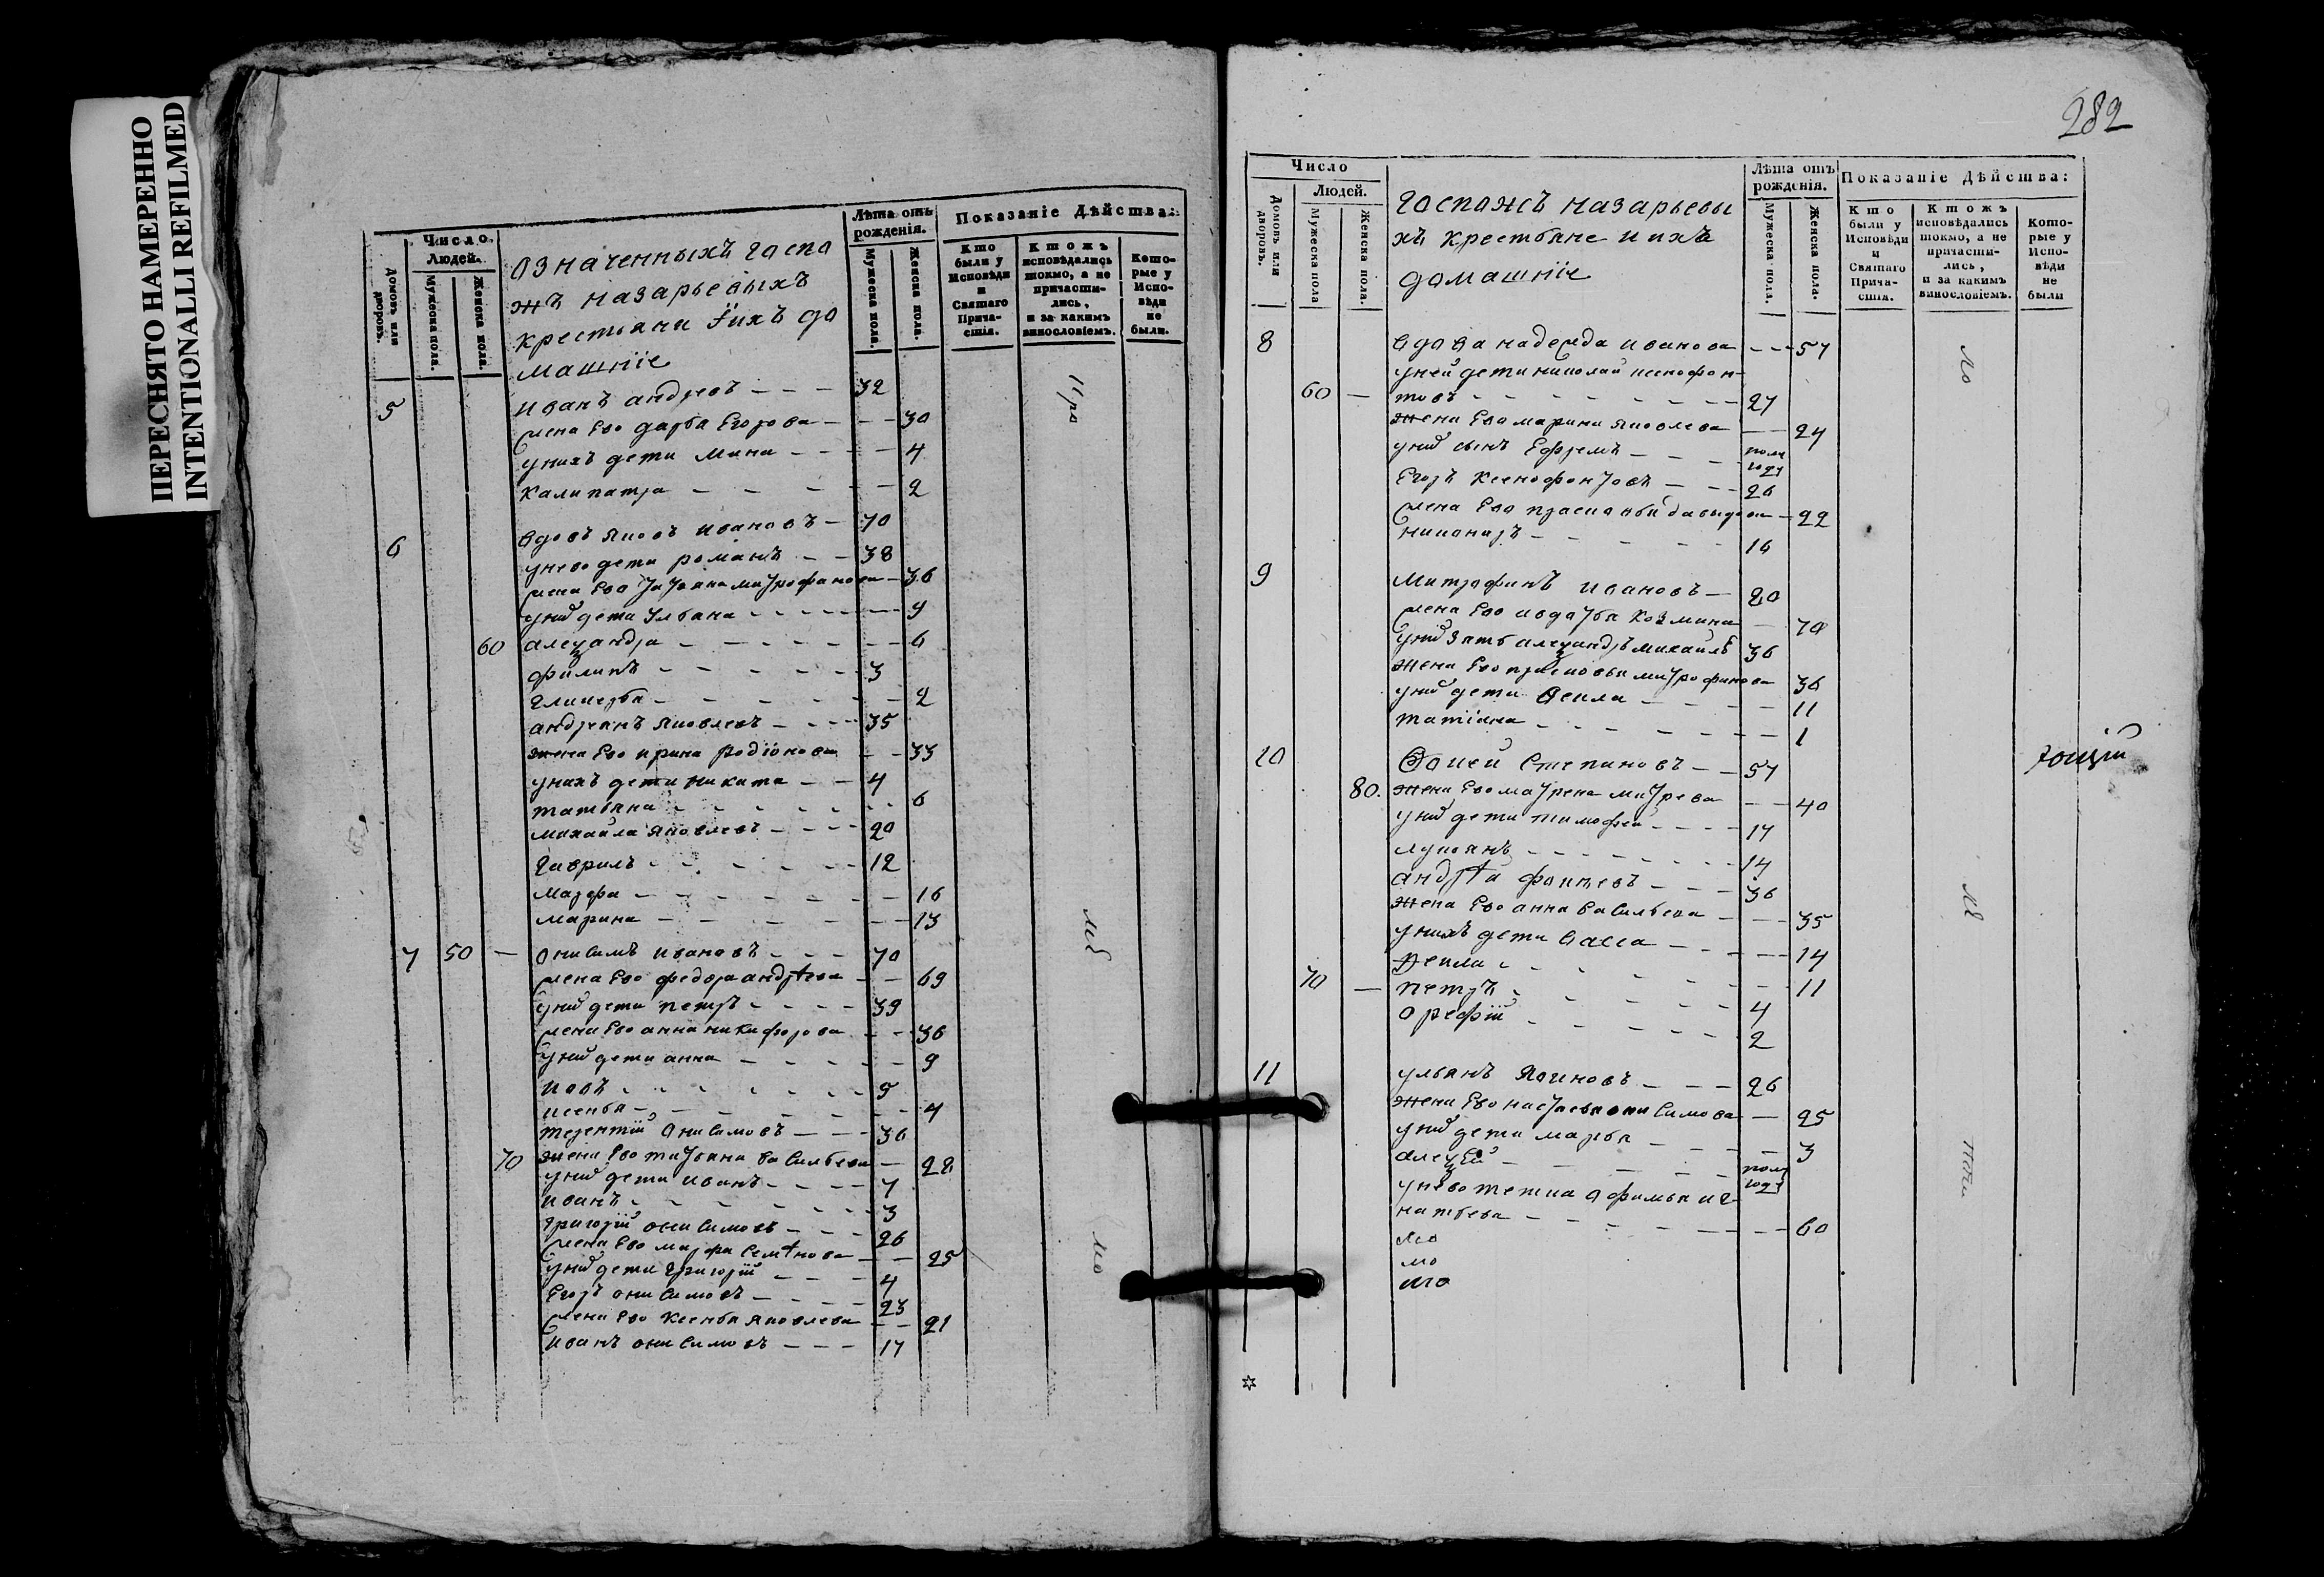 ПЕРЕСНЯТО НАМЕРЕННО
INTENTIONALLI REFILMED
Число
Людей.
Домовъ или дворовъ.
Мужеска пола.
Женска пола.
означенныхъ госпо
жъ назарьевыхъ
крестьяни ихъ до
машнїе
Лѣта отъ рожденія.
Мужеска пола.
Женска пола.
Показаніе Дѣйства:
Кто были у Исповѣди и Святаго Прича-стія.
Ктожъ исповѣдались токмо, а не причасти-лись, и за какимъ винословіемъ.
Кото-рые у Испо-вѣди не были.
5 иванъ андревъ - - - 32
жена Ево дарья Егорова - - - 30
унихъ дети - - - 4
Калипатра - - - 2
6 вдовъ яковъ ивановъ - 70
унево дети романъ - - 38
жена Ево татьяна митрофанова - 36
унихъ дети Ульяна - - - 9
60 алеѯандра - - - 6
филипъ - - - 3
гликерья - - - 2
андреянъ яковлевъ - - - 35
жена Ево ирина Родїонова - - 33
унихъ дети никита - - 4
татьяна - - - 6
михаила яковлевъ - - - 20
гаврилъ - - - 12
марфа - - - 16
марина - - - 13
7 50 - онисимъ ивановъ - - - 70
жена Ево федора андрѣева - - 69
унихъ дети петръ - - - 39
жена Ево анна никифорова - - 36
унихъ дети анна - - - 9
иовъ - - - 5
ксенья - - - 4
терентїй онисимовъ - - - 36
70 жена Ево татьяна васильева - 28
унихъ дети иванъ - - - 7
иванъ - - - 3
григорїй онисимовъ - - - 26
жена Ево марфа семѣнова - - 25
унихъ дети григорїй - - - 4
Егоръ онисимовъ - - - 23
жена Ево Ксенья яковлева - - 21
иванъ онисимовъ - - - 17
282
Число
Людей.
Домовъ или дворовъ.
Мужеска пола
Женска пола.
госпожъ назарьевы
хъ крестьяне и ихъ
домашнїе
Лѣта отъ рожденія.
Мужеска пола.
Женска пола.
Показаніе Дѣйства:
Кто были у Исповѣди и Святаго Прича-стія.
Ктожъ исповѣдались токмо, а не причасти-лись, и за какимъ винословіемъ.
Кото-рые у Испо-вѣди не были
8 вдова надежда иванова - - - 57
уней дети николай ксенофон-
60 - товъ - - - 27
жена Ево марина яковлева - - 24
унихъ сынъ Ефремъ - - - полъ году
Егоръ Ксенофонтовъ - - - 26
жена Ево прасковья давидова - 22
никаноръ - - - 16
9 Митрофанъ ивановъ - 80
жена Ево авдотья козмина - 70
унихъ зять алеѯандръ михаилъ 36
жена Ево прасковья митрофанова 36
унихъ дети Ѳекла - - - 11
татїана - - - 1
10 Ѳокей Степановъ - - 57
80. жена Ево матрена - - 40
унихъ дети тимофей - - - 17
лукоянъ - - - 14
андрѣй фокеевъ - - - 36
жена Ево анна васильева - - - 35
унихъ дети васса - - - 14
Ѳекла - - - 11
70 - петръ - - - 4
орефїй - - - 2
11 ульянъ - - - 26
жена Ево настасья онисимова - 25
унихъ дети марья - - - 3
алеѯей - - - полъ году
унево тетка афимья иг-
натьева - - - 60